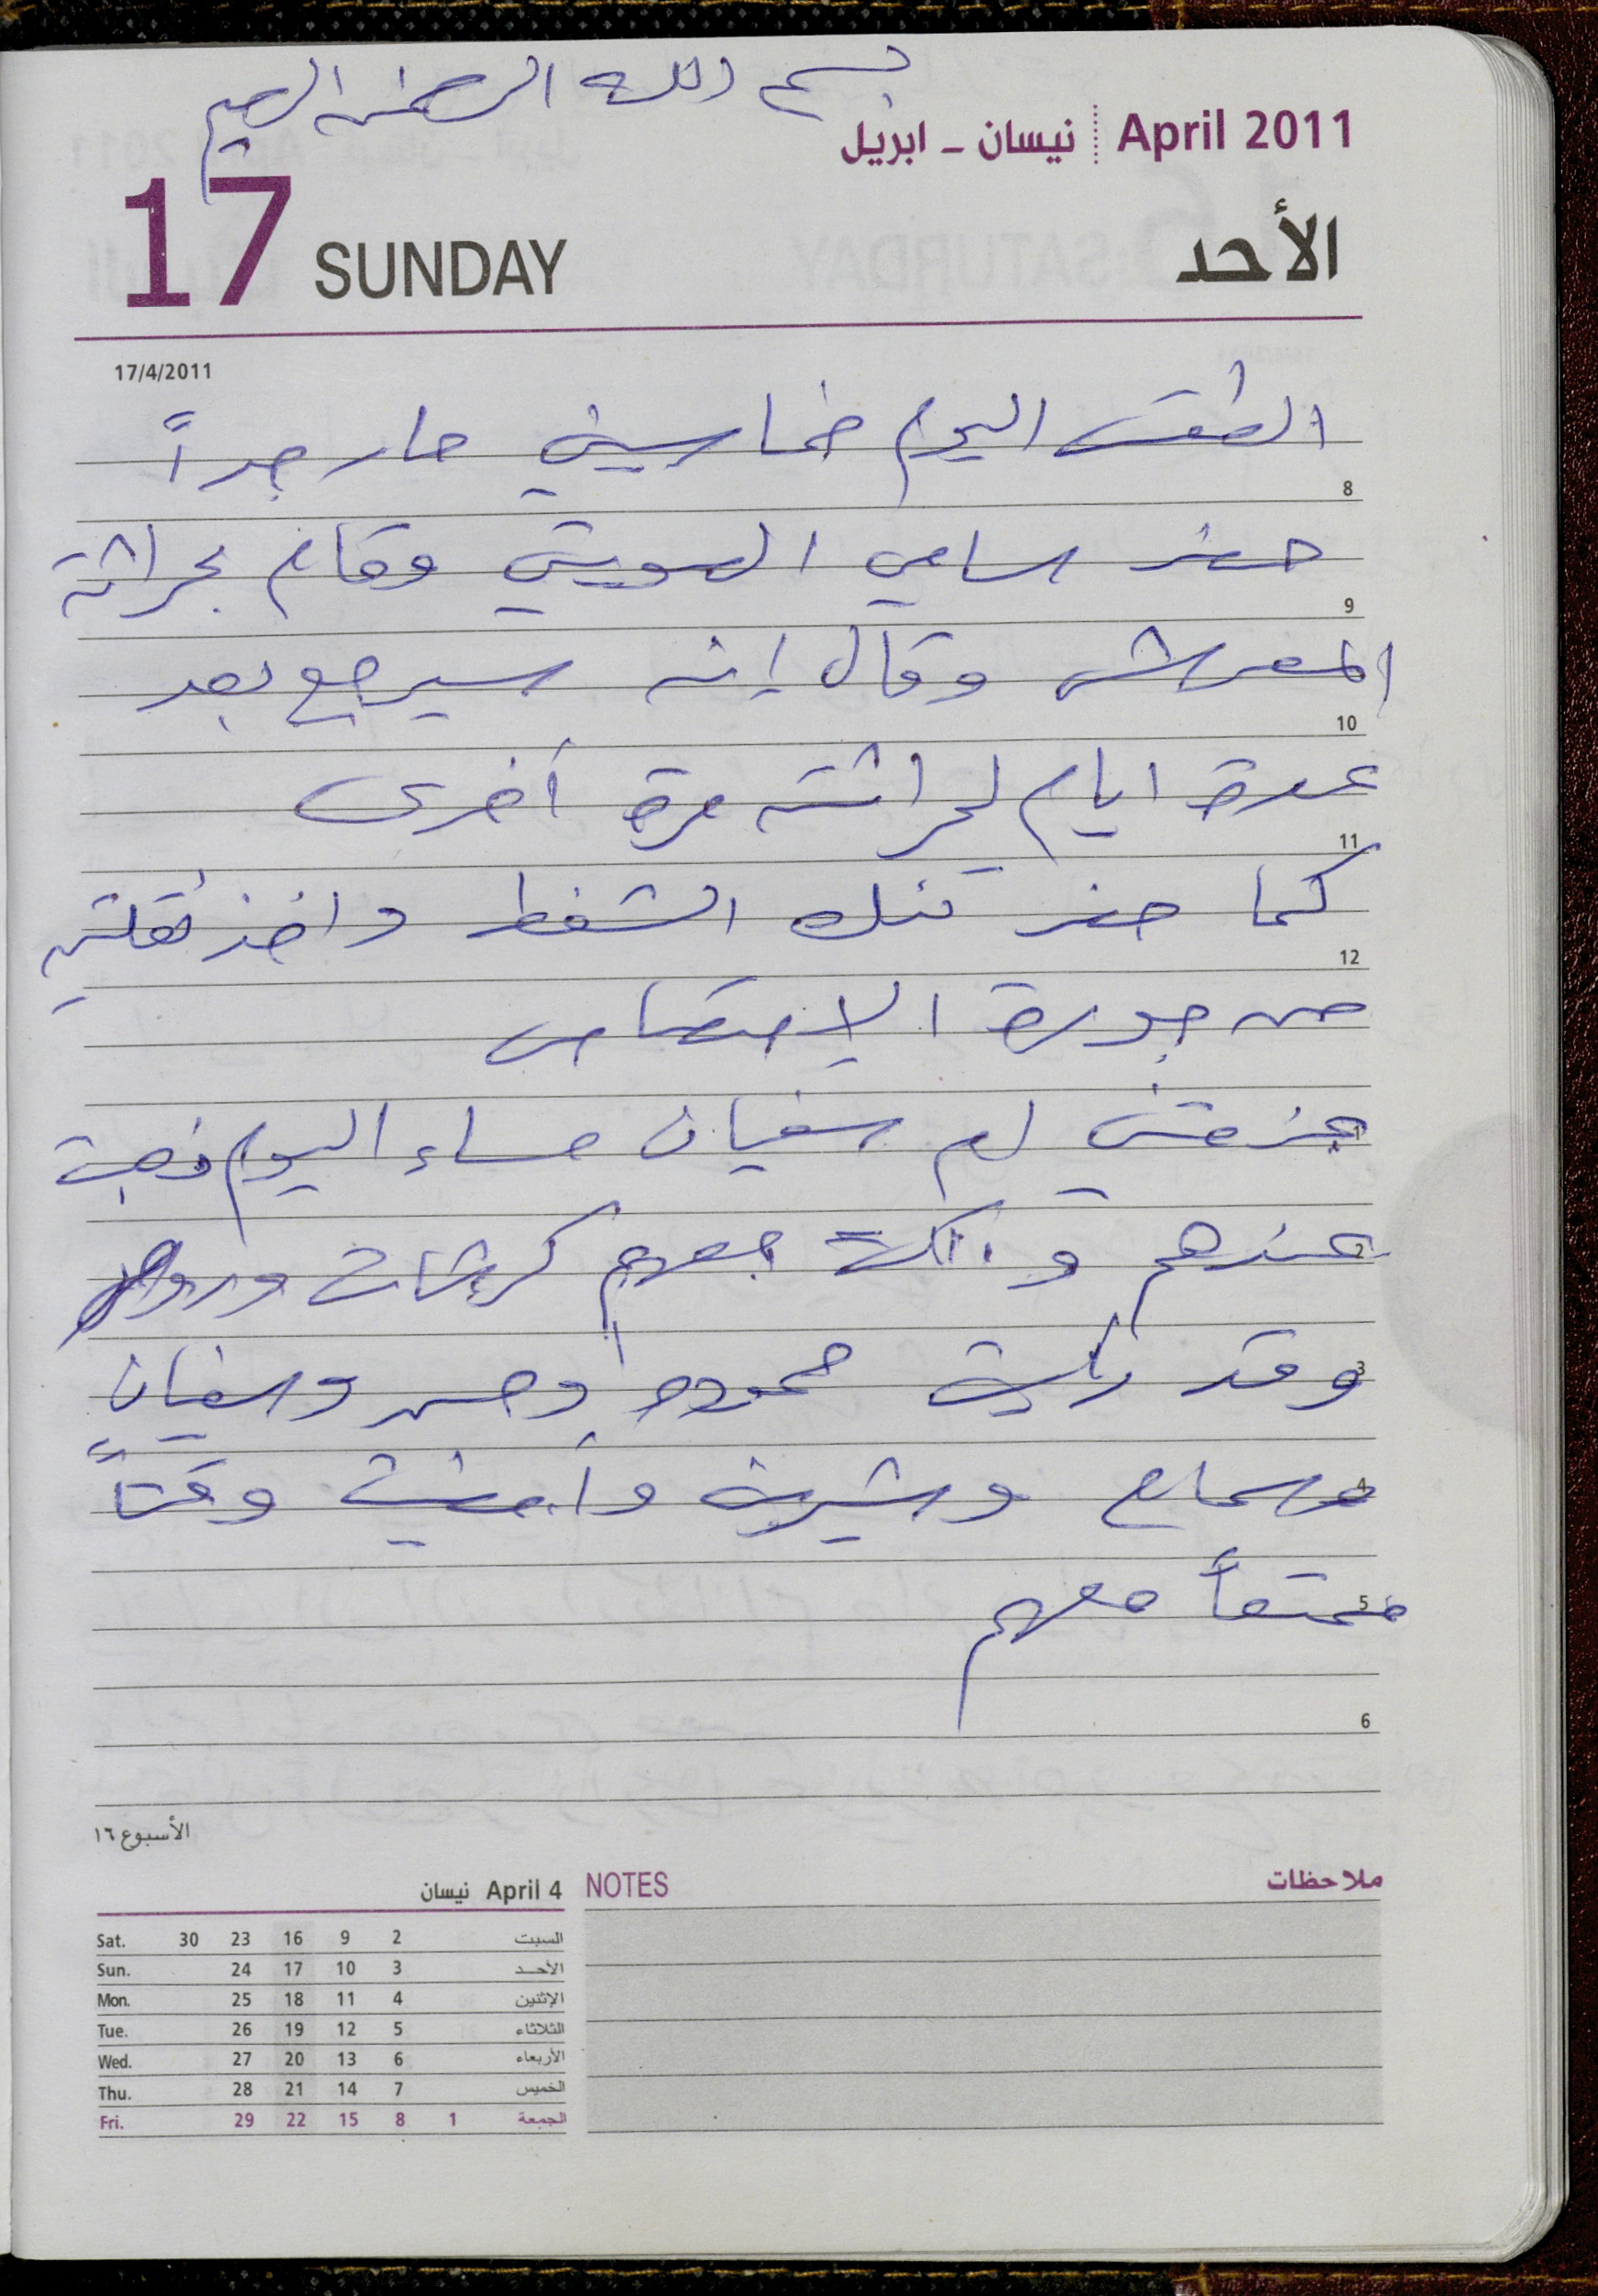 بسم الله الرحمن الرحيم
April 2011 نيسان - ابريل
17 SUNDAY الأحد
17/4/2011
الطقس اليوم خماسيني حار جداً
8
حضر سامي السويتي وقام بحراثة
9
المفرش وقال إنه سيرجع بعد
10
عدة ايام لحراثته مرة أخرى
11
كما حضر تنك الشفط واخذ نقلتين
12
من جورة الامتصاص
1
عزمتني ام سفيان مساء اليوم فذهبت
2
عندهم و اكلت معهم كرشات
3
وقد رأيت محمود وحسن وسفيان
4
وسماح وشيرين وأمضيت وقتاً
5
ممتعاً معهم
6
الأسبوع ١٦
نيسان April 4
السبت 2 9 16 23 30 Sat.
الأحد 3 10 17 24 Sun.
الإثنين 4 11 18 25 Mon.
الثلاثاء 5 12 19 26 Tue.
الأربعاء 6 13 20 27 Wed.
الخميس 7 14 21 28 Thu.
الجمعة 1 8 15 22 29 Fri.
NOTES ملاحظات